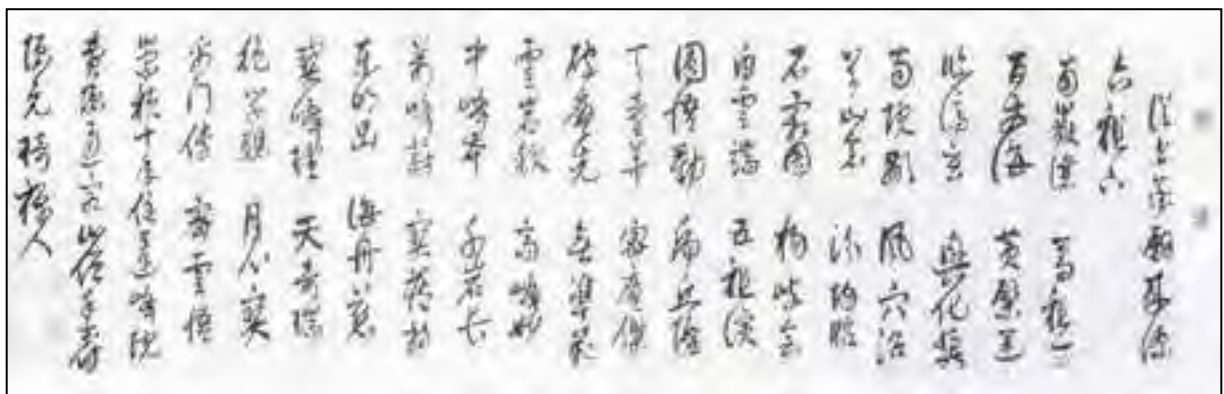 南嶽讓 馬祖一
百丈海 黃檗運
臨濟玄 興化獎
南院顒 風穴沼
首山念 汾陽昭
石霜圓 楊岐會
白雲端 五祖演
圜悟勤 虎丘隆
菴華 密菴傑
破菴先 無準範
雪岩欽 高峰妙
中峰本 千岩長
萬峰蔚 寶藏持
東明旵 海舟慈
寶峰瑄 天奇瑞
絕學聰 月心寶
禹門傳 密雲悟
崇禎十年住蓮峰院
費隱通容山僧
隱元琦